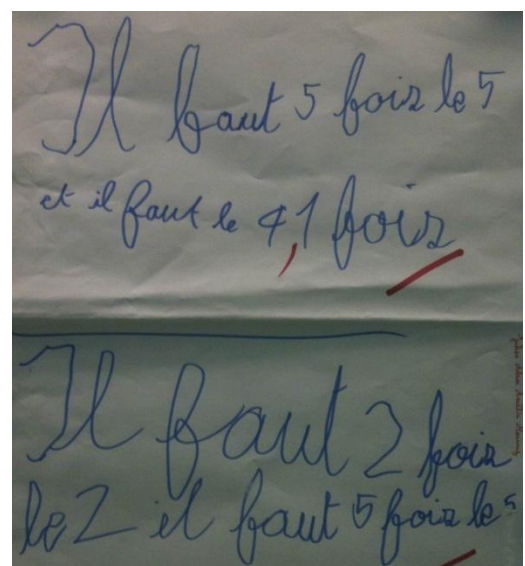 Il faut 5 fois le 5
et il faut le 4, 1 fois
Il faut 2 fois
le 2 il faut 5 fois le 5